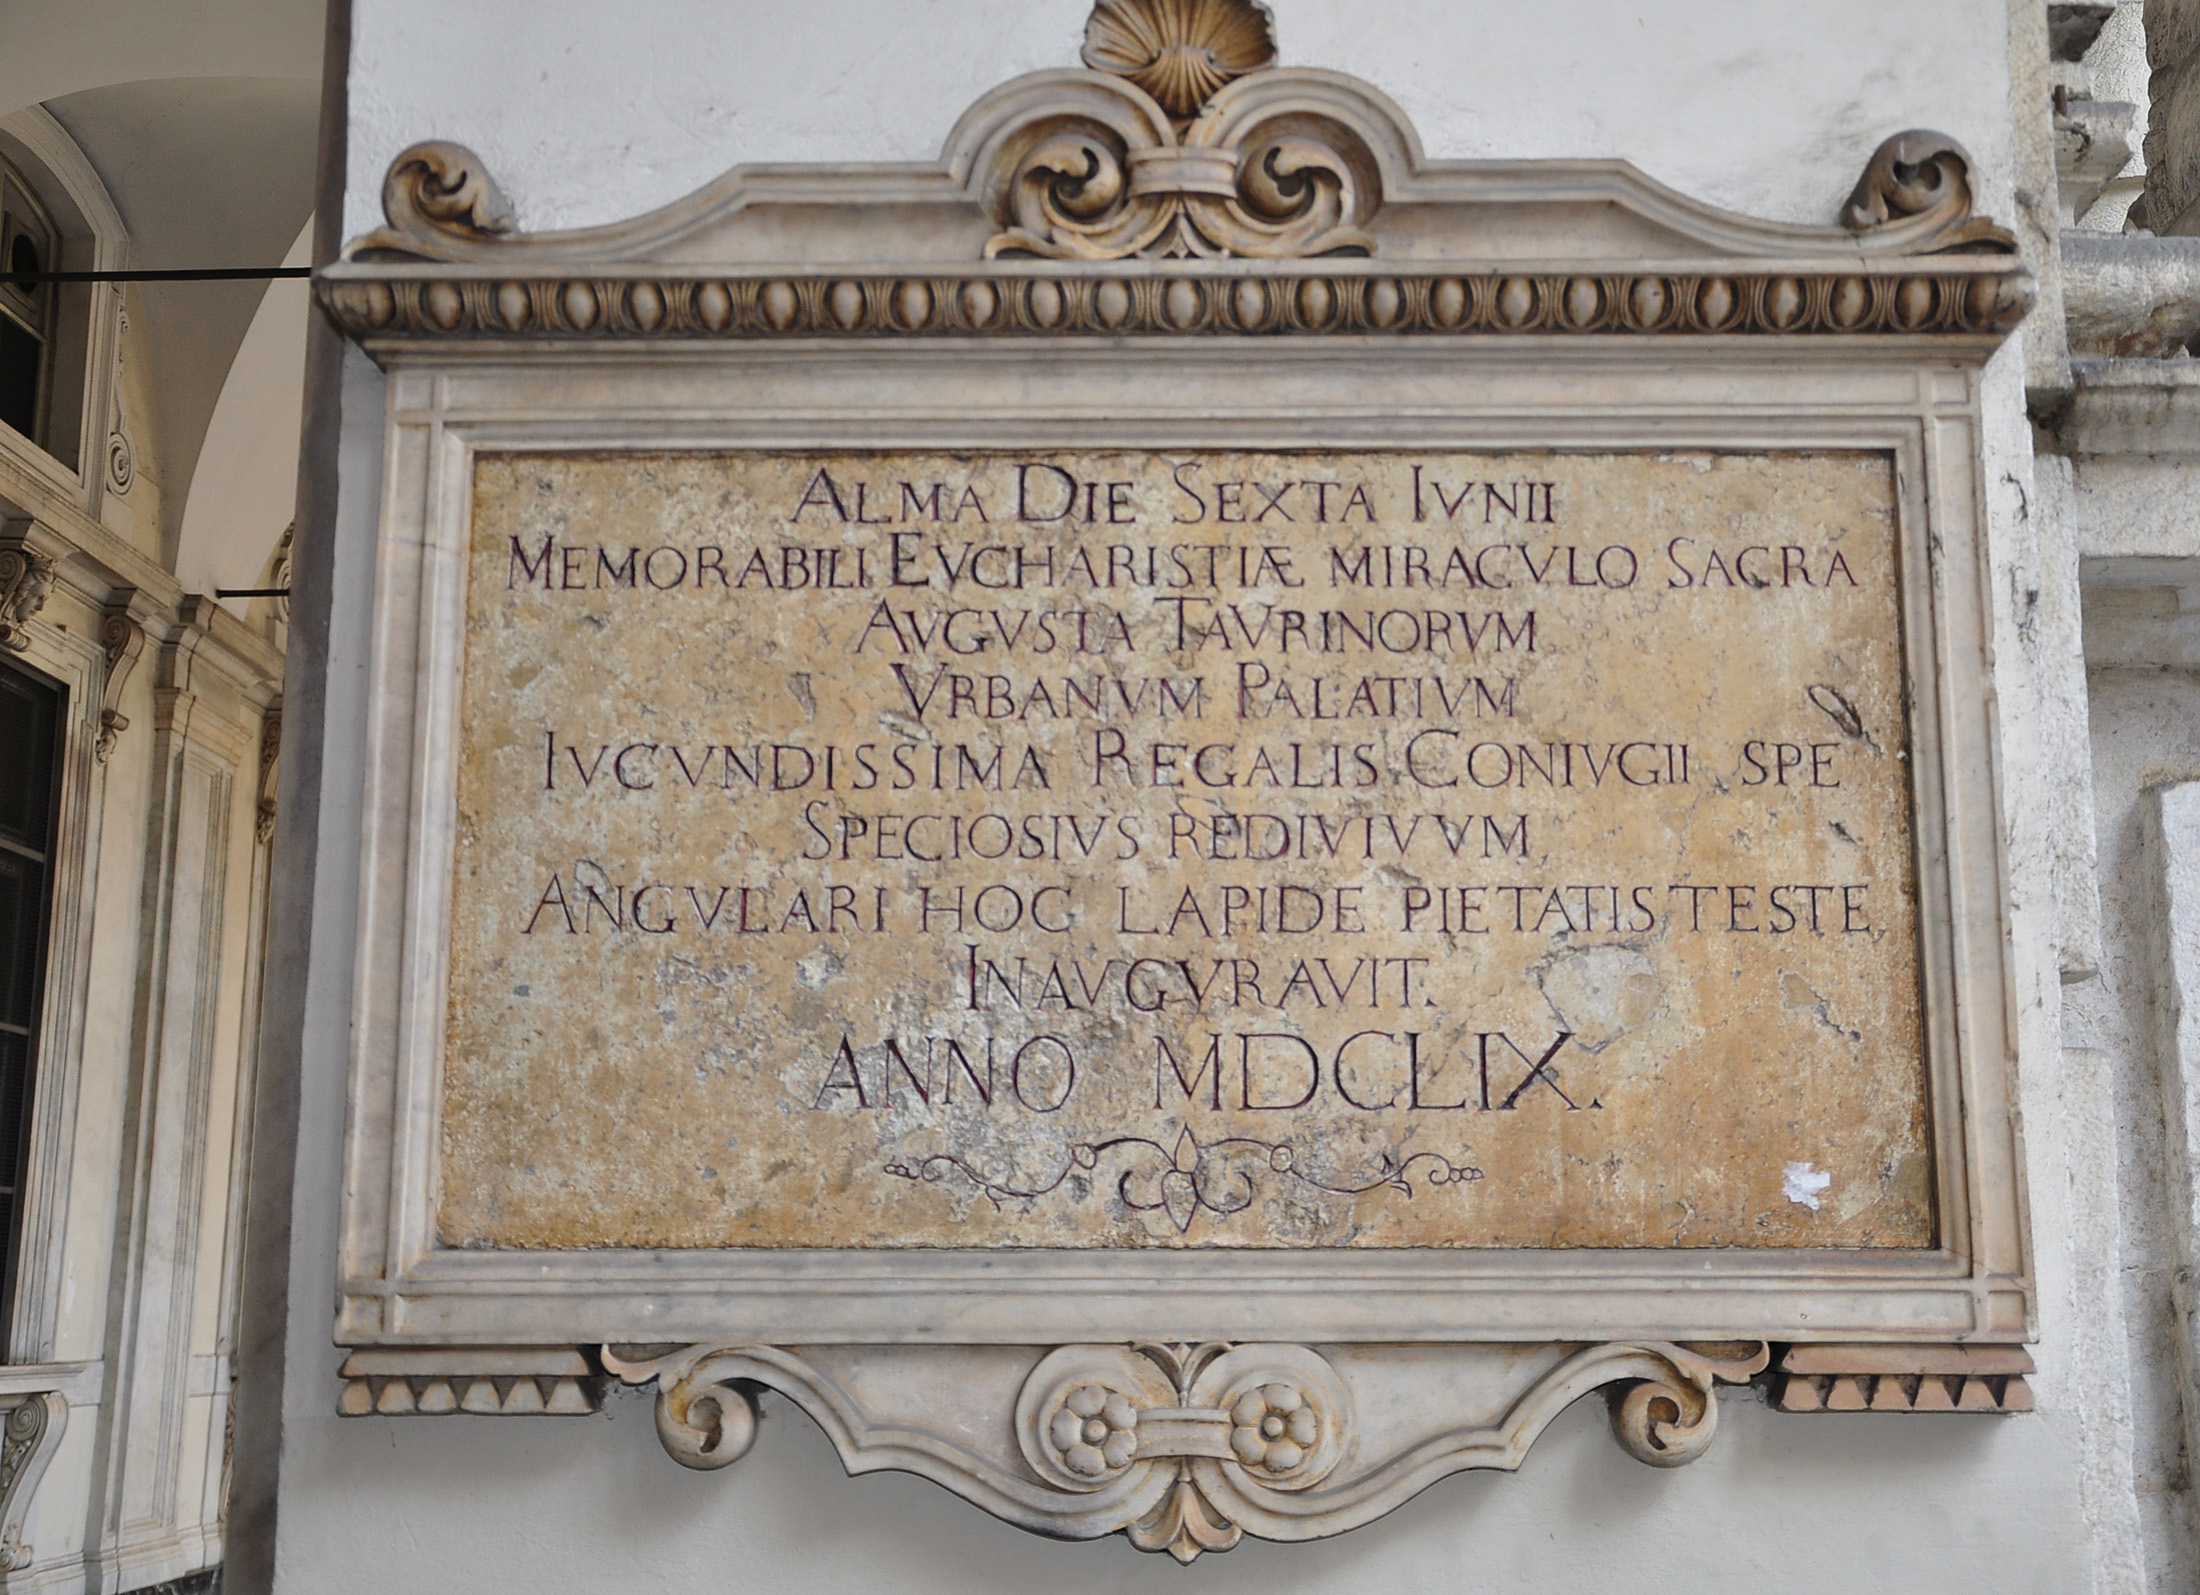 ALMA DIE SEXTA IVNII
MEMORABILI EVCHARISTIÆ MIRACVLO SACRA
AVGVSTA TAVRINORVM
VRBANVM PALATIVM
IVCVNDISSIMA REGALIS CONIVGII SPE
SPECIOSIVS REDIVIVVM,
ANGVLARI HOC LAPIDE PIETATIS TESTE,
INAVGVRAVIT.
ANNO MDCLIX.